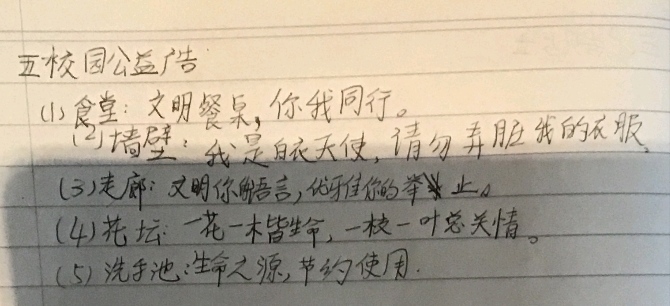 五校园公益广告
(1)食堂：文明餐桌，你我同行。
(2)墙壁：我是白衣天使，请勿弄脏我的衣服。
(3)走廊：文明你的语言，优雅你的举止。
(4)花坛：一花一木皆生命，一枝一叶总关情。
(5)洗手池：生命之源，节约使用.